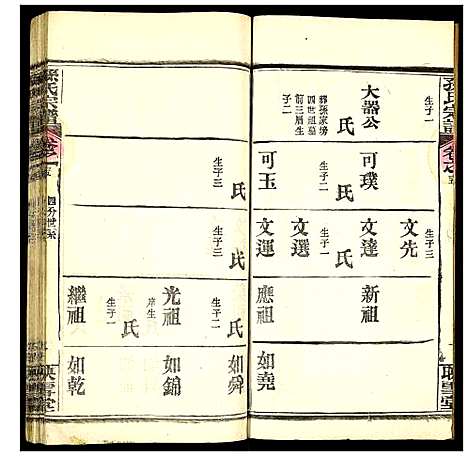 孫氏宗譜
生子一
大器公
氏
葬孫家塝
四世祖墓
前三層生
子二
可璞
氏
生子三
可玉
氏
生子三
文先
生子三
文達
氏
生子二
文選
文運
氏
生子三
新祖
應祖
光祖
氏
生子二
庠生
繼祖
氏
生子二
如堯
如舜
如錦
如乾
映雪堂
孫氏宗譜
四分世系
映雪堂